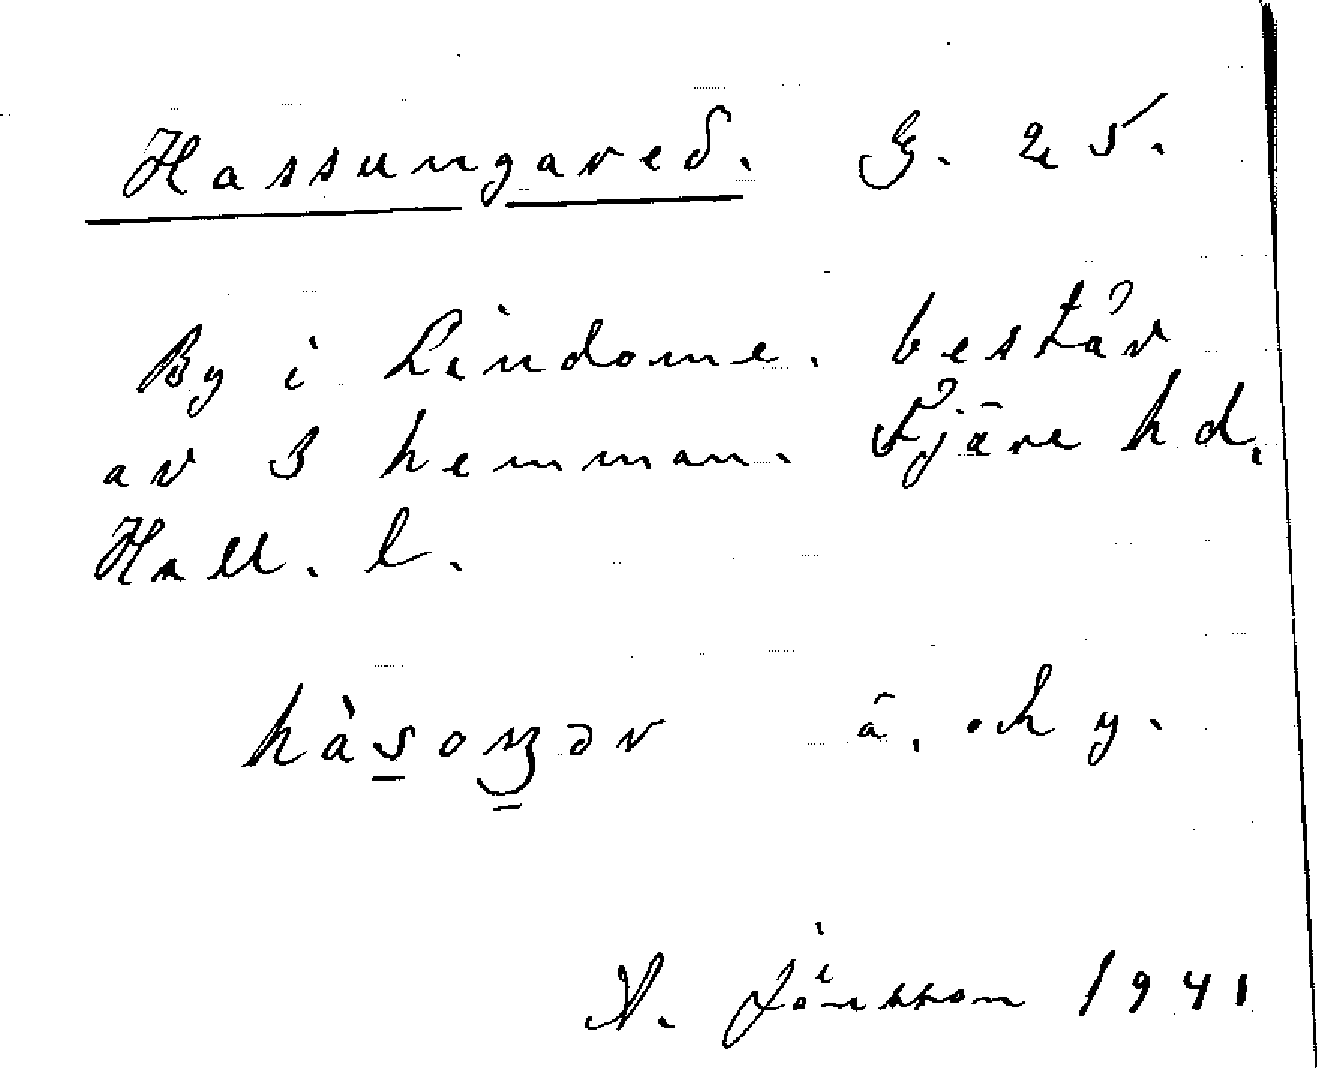 Hassungared. G. 25.
By i Lindome. består
av 3 hemman. Fjäre hd.
Hall. l.
hàsoŋər ä. och y.
A. Jönsson 1941